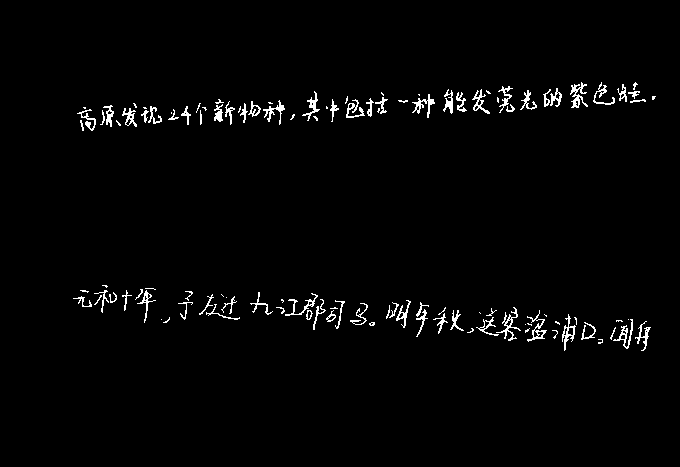 高原发现24个新物种，其中包括一种能发荧光的紫色蛙.
元和十年，予左迁九江郡司马。明年秋，送客湓浦口。闻舟